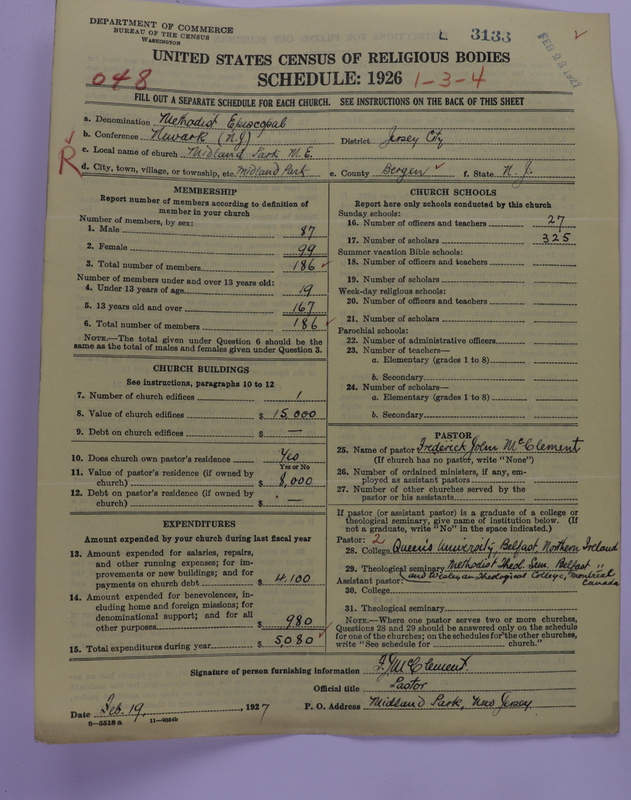 DEPARTMENT OF COMMERCE
BUREAU OF THE CENSUS
WASHINGTON
L 3133
FEB 23 1927
UNITED STATES CENSUS OF RELIGIOUS BODIES
SCHEDULE: 1926
048
1-3-4
FILL OUT A SEPARATE SCHEDULE FOR EACH CHURCH. SEE INSTRUCTIONS ON THE BACK OF THIS SHEET
a. Denomination Methodist Episcopal
b. Conference Newark (N.J) District Jersey City
c. Local name of church Midland Park M.E.
R
d. City, town, village, or township, etc. Midland Park e. County Bergen f. State N. J.
MEMBERSHIP
Report number of members according to definition of
member in your church
Number of members, by sex:
1. Male 87
2. Female 99
3. Total number of members 186
Number of members under and over 13 years old:
4. Under 13 years of age 19
5. 13 years old and over 167
6. Total number of members 186
NOTE.—The total given under Question 6 should be the
same as the total of males and females given under Question 3.
CHURCH BUILDINGS
See instructions, paragraphs 10 to 12
7. Number of church edifices 1
8. Value of church edifices $ 15,000
9. Debt on church edifices $ —
10. Does church own pastor's residence? Yes
Yes or No
11. Value of pastor's residence (if owned by
church) $ 8,000
12. Debt on pastor's residence (if owned by
church) $ —
EXPENDITURES
Amount expended by your church during last fiscal year
13. Amount expended for salaries, repairs,
and other running expenses; for im-
provements or new buildings; and for
payments on church debt $ 4,100
14. Amount expended for benevolences, in-
cluding home and foreign missions; for
denominational support; and for all
other purposes $ 980
15. Total expenditures during year $ 5,080
CHURCH SCHOOLS
Report here only schools conducted by this church
Sunday schools:
16. Number of officers and teachers 27
17. Number of scholars 325
Summer vacation Bible schools:
18. Number of officers and teachers
19. Number of scholars
Week-day religious schools:
20. Number of officers and teachers
21. Number of scholars
Parochial schools:
22. Number of administrative officers
23. Number of teachers—
a. Elementary (grades 1 to 8)
b. Secondary
24. Number of scholars—
a. Elementary (grades 1 to 8)
b. Secondary
PASTOR
25. Name of pastor Frederick John McClement
(If church has no pastor, write "None")
26. Number of ordained ministers, if any, em-
ployed as assistant pastors
27. Number of other churches served by the
pastor or his assistants
If pastor (or assistant pastor) is a graduate of a college or
theological seminary, give name of institution below. (If
not a graduate, write "No" in the space indicated.)
Pastor: 2
28. College Queen's University, Belfast Northern Ireland
29. Theological seminary Methodist Theol. Sem. Belfast "
and Wesleyan Theological College, Montreal
Canada
Assistant pastor:
30. College
31. Theological seminary
NOTE.—Where one pastor serves two or more churches,
Questions 28 and 29 should be answered only on the schedule
for one of the churches; on the schedules for the other churches,
write "See schedule for church."
Signature of person furnishing information F. J. McClement
Official title Pastor
Date Feb. 19, 1927 P. O. Address Midland Park, New Jersey
8—5518 a 11—9584b